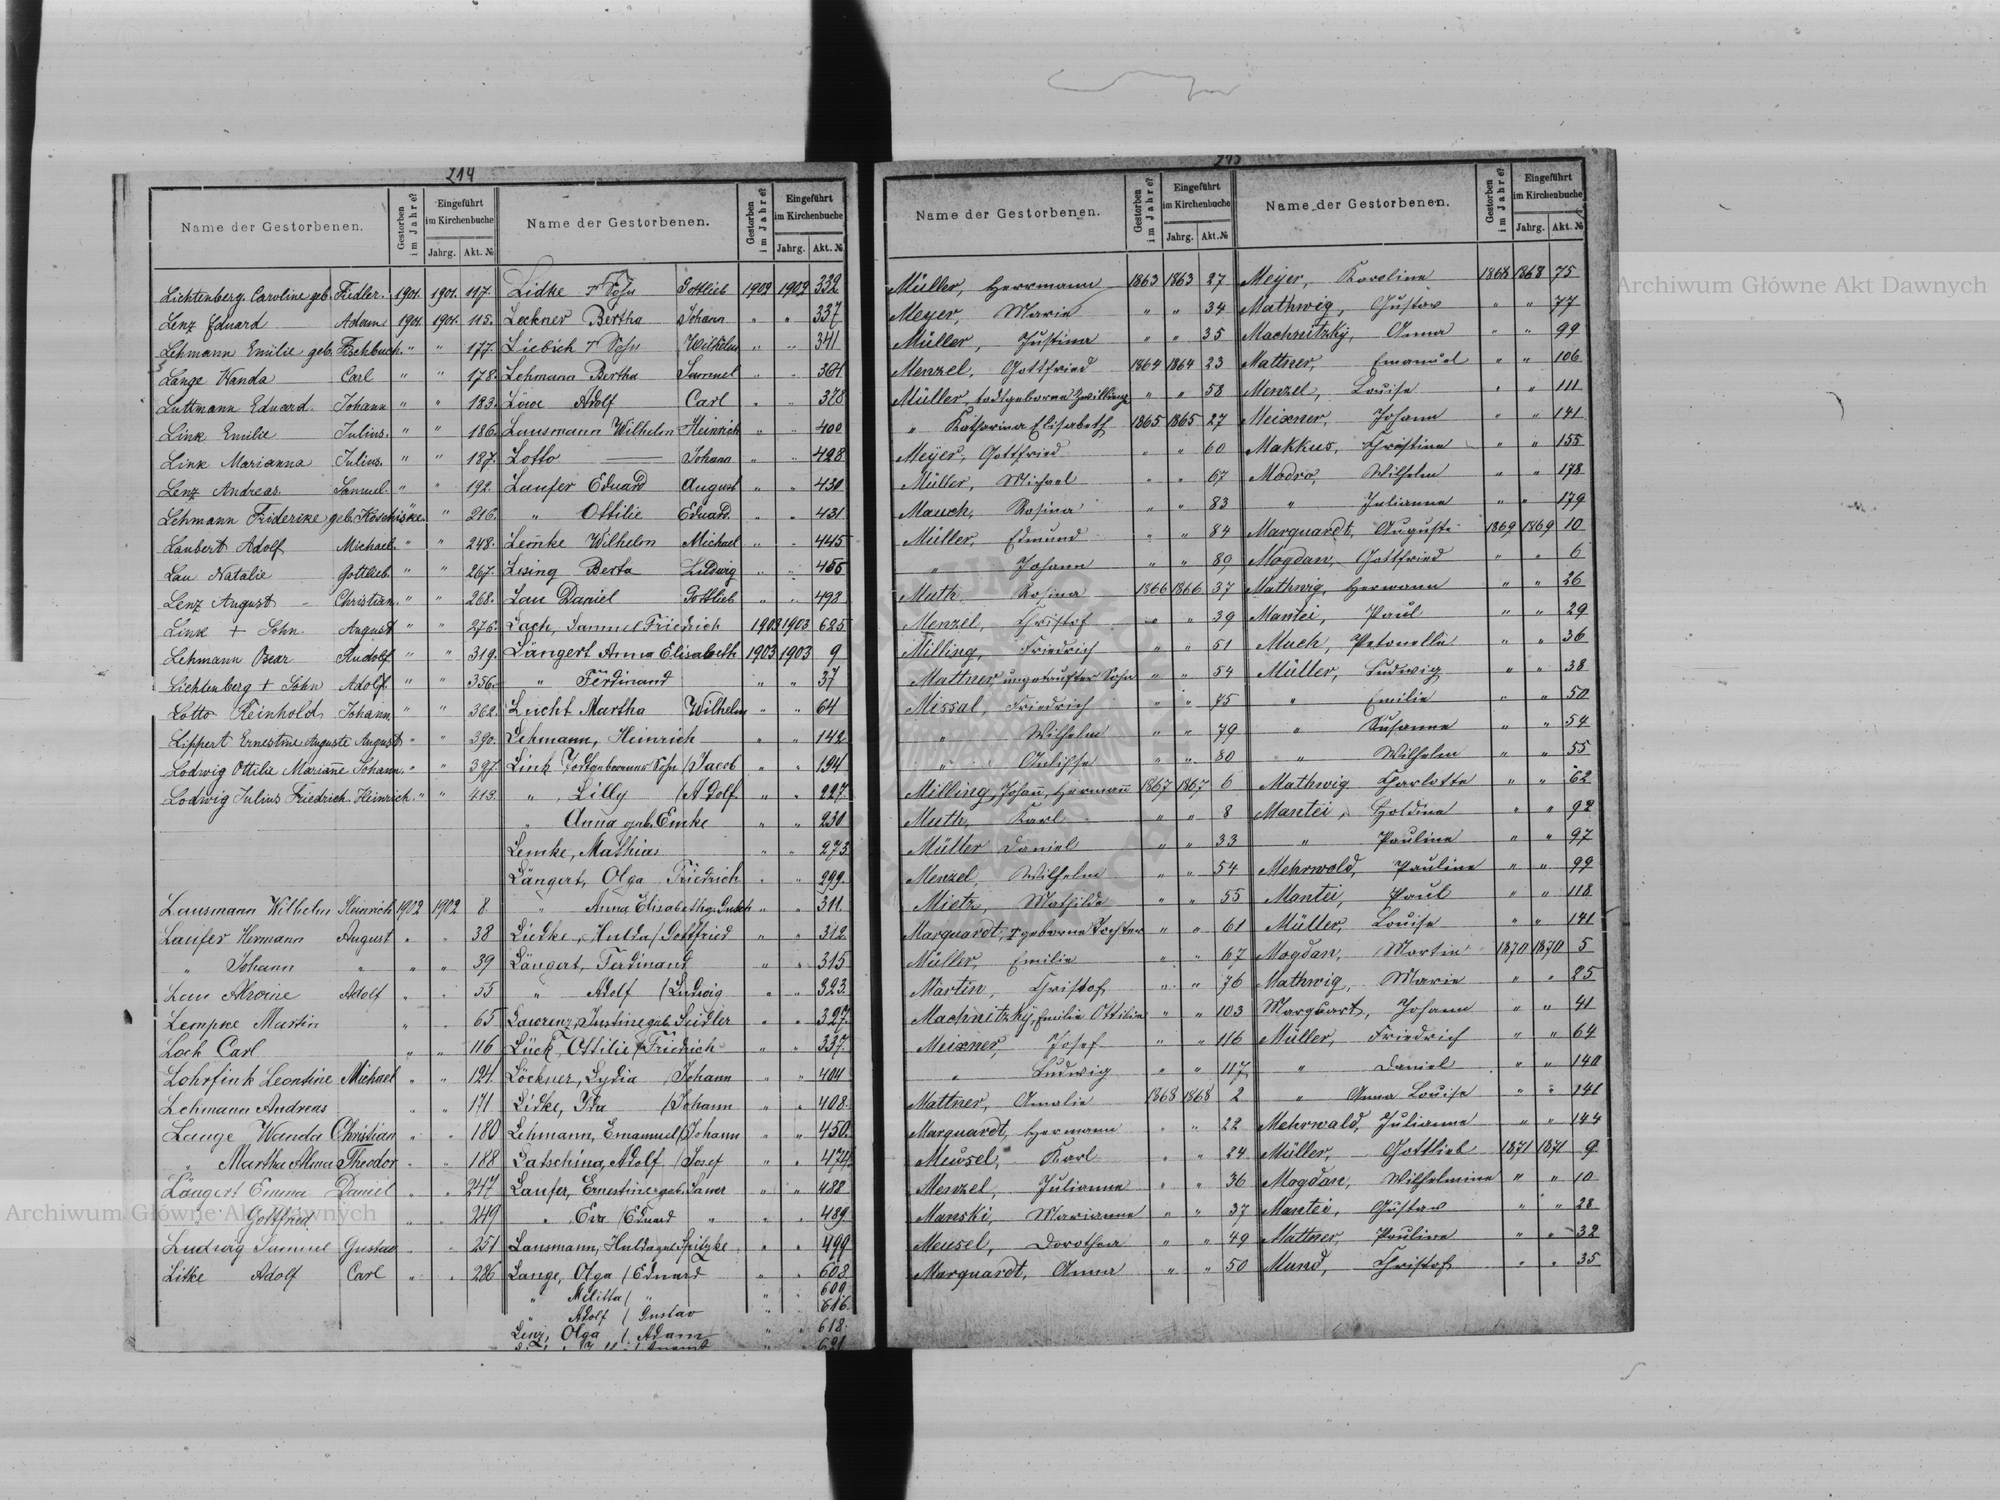 214
Name der Gestorbenen. Gestorben im Jahre? Eingeführt im Kirchenbuche Jahrg. Akt. №
Lichtenberg Caroline geb. Fidler. 1901. 1901. 117.
Lenz Eduard Adam 1901. 1901. 115.
Lehmann Emilie geb. Fischbuch. " " 177.
Lange Wanda Carl " " 178.
Luttmann Eduard. Johann " " 183.
Link Emilie Julius. " " 186.
Link Marianna Julius. " " 187.
Lenz Andreas. Samuel. " " 192.
Lehmann Friderike geb. Koschiske. " 216.
Laubert Adolf Michael. " " 248.
Lau Natalie Gottlieb. " " 267.
Lenz August Christian. " " 268.
Link + Sohn. August " " 276.
Lehmann Oscar Rudolf " " 319.
Lichtenberg + Sohn Adolf. " " 356.
Lotto Reinhold Johann " " 362.
Lippert Ernestine Auguste August " " 390.
Lodwig Ottilie Marianne Johann. " " 397.
Lodwig Julius Friedrich Heinrich. " " 413.
Lausmann Wilhelm Heinrich 1902 1902 8
Laufer Hermann August " " 38
" Johann " " " 39
Lau Adolf " " 55
Lempke Martin " " 65
Loch Carl " " 116
Lohrfink Leontine Michael " " 124
Lehmann Andreas " " 171
Lange Wanda Christian " " 180
" Martha Alma Theodor " " 188
Längert Emma Daniel " " 247
" Gottfried " " 249
Ludwig Samuel Gustav " " 251
Litke Adolf Carl " " 286
Name der Gestorbenen. Gestorben im Jahre? Eingeführt im Kirchenbuche Jahrg. Akt. №
Lidke + Sohn Gottlieb 1902 1902 332
Leckner Bertha Johann " " 337
Liebich + Sohn Wilhelm " " 341
Lehmann Bertha Samuel " " 361
Löwe Adolf Carl " " 378
Lausmann Wilhelm Heinrich " " 400
Lotto — Johann " " 428
Laufer Eduard August " " 430
" Ottilie Eduard. " " 431
Lemke Wilhelm Michael " " 445
Lising Berta Ludwig " " 455
Lau Daniel Gottlieb " " 498
Lach, Samuel Friedrich 1903 1903 625
Längert Anna Elisabeth 1903 1903 9
" Ferdinand " " 37
Lucht Martha Wilhelm " " 64
Lehmann, Heinrich " " 142
Link Todtgeborener Sohn / Jacob " " 194
" Lilly / Adolf. " " 227.
" Anna geb. Emke " " 230
Lemke, Mathias " " 273
Längert, Olga Friedrich " " 299.
" Anna Elisabeth " " 311
Liedke, Hulda / Gottfried " " 312
Längert, Ferdinand " " 315
" Adolf / Ludwig " " 323
Lawrenz, Justine geb. Seidler " " 327.
Lück, Ottilie / Friedrich " " 337.
Löckner, Lydia / Johann " " 404
Lidke, Ida / Johann " " 408
Lehmann, Emanuel / Johann " " 450
Latsching Adolf / Josef " " 474
Laufer, Ernestine geb. Sauer " " 488
" Eva / Eduard " " " 489
Lausmann, Hulda geb. " " 499
Lange, Olga / Eduard " " 608
" Melitta / " " " 609
" Adolf / Gustav " " 616.
Lenz, Olga / Adam " " 618
621
Name der Gestorbenen. Gestorben im Jahre? Eingeführt im Kirchenbuche Jahrg. Akt. №
Müller, Herrmann 1863 1863 27
Meyer, Marie " " 34
Müller, Justina " " 35
Menzel, Gottfried 1864 1864 23
Müller, todtgeborne Zwillinge " " 58
" Katharina Elisabeth 1865 1865 27
Meyer, Gottfried " " 60
Müller, Michael " " 67
Mauch, Rosina " " 83
Müller, Edmund " " 84
" Johann " " 89
Muth Rosina 1866 1866 37
Menzel, Christof " " 39
Milling, Friedrich " " 51
Mattner ungetaufter Sohn " " 54
Missal, Friedrich " " 75
" Wilhelm " " 79
" " " 80
Milling, Johann, Hermann 1867 1867 6
Muth, Karl " " 8
Müller Daniel " " 33
Menzel, Wilhelm " " 54
Mietz, Mathilde " " 55
Marquardt, + geborne Tochter " " 61
Müller, Emilie " " 67
Martin, Christof " " 76
Machnitzky, Emilie Ottilie " " 103
Meixner, Josef " " 116
" Ludwig " " 117
Mattner, Amalie 1868 1868 2
Marquardt, Hermann " " 22
Meusel, Karl " " 24
Menzel, Julianna " " 36
Manski, Marianna " " 37
Meusel, Dorothea " " 49
Marquardt, Anna " " 50
Name der Gestorbenen. Gestorben im Jahre? Eingeführt im Kirchenbuche Jahrg. Akt. №
Meyer, Karoline 1868 1868 75
Mathwig, Gustav " " 77
Machnitzky, Anna " " 99
Mattner, Emanuel " " 106
Menzel, Louise " " 111
Meixner, Johann " " 141
Makkus, Christine " " 155
Modro, Wilhelm " " 178
" Julianna " " 179
Marquardt, Auguste 1869 1869 10
Mogdan, Gottfried " " 6
Mathwig, Hermann " " 26
Mantei, Paul " " 29
Much, Petonella " " 36
Müller, Ludwig " " 38
" Emilie " " 50
" Susanna " " 54
" Wilhelm " " 55
Mathwig Charlotte " " 62
Mantei, " " 92
" Pauline " " 97
Mehrwald, Pauline " " 99
Mantei, Paul " " 118
Müller, Louise " " 141
Mogdan, Martin 1870 1870 5
Mathwig, Marie " " 25
Marquart, Johann " " 41
Müller, Friedrich " " 64
" Daniel " " 140
" Anna Louise " " 141
Mehrwald, Julianna " " 144
Müller, Gottlieb 1871 1871 9
Mogdan, Wilhelmine " " 10
Mantei, Gustav " " 28
Mattner, Pauline " " 32
Mund, Christof " " 35
Archiwum Główne Akt Dawnych
Archiwum Główne Akt Dawnych